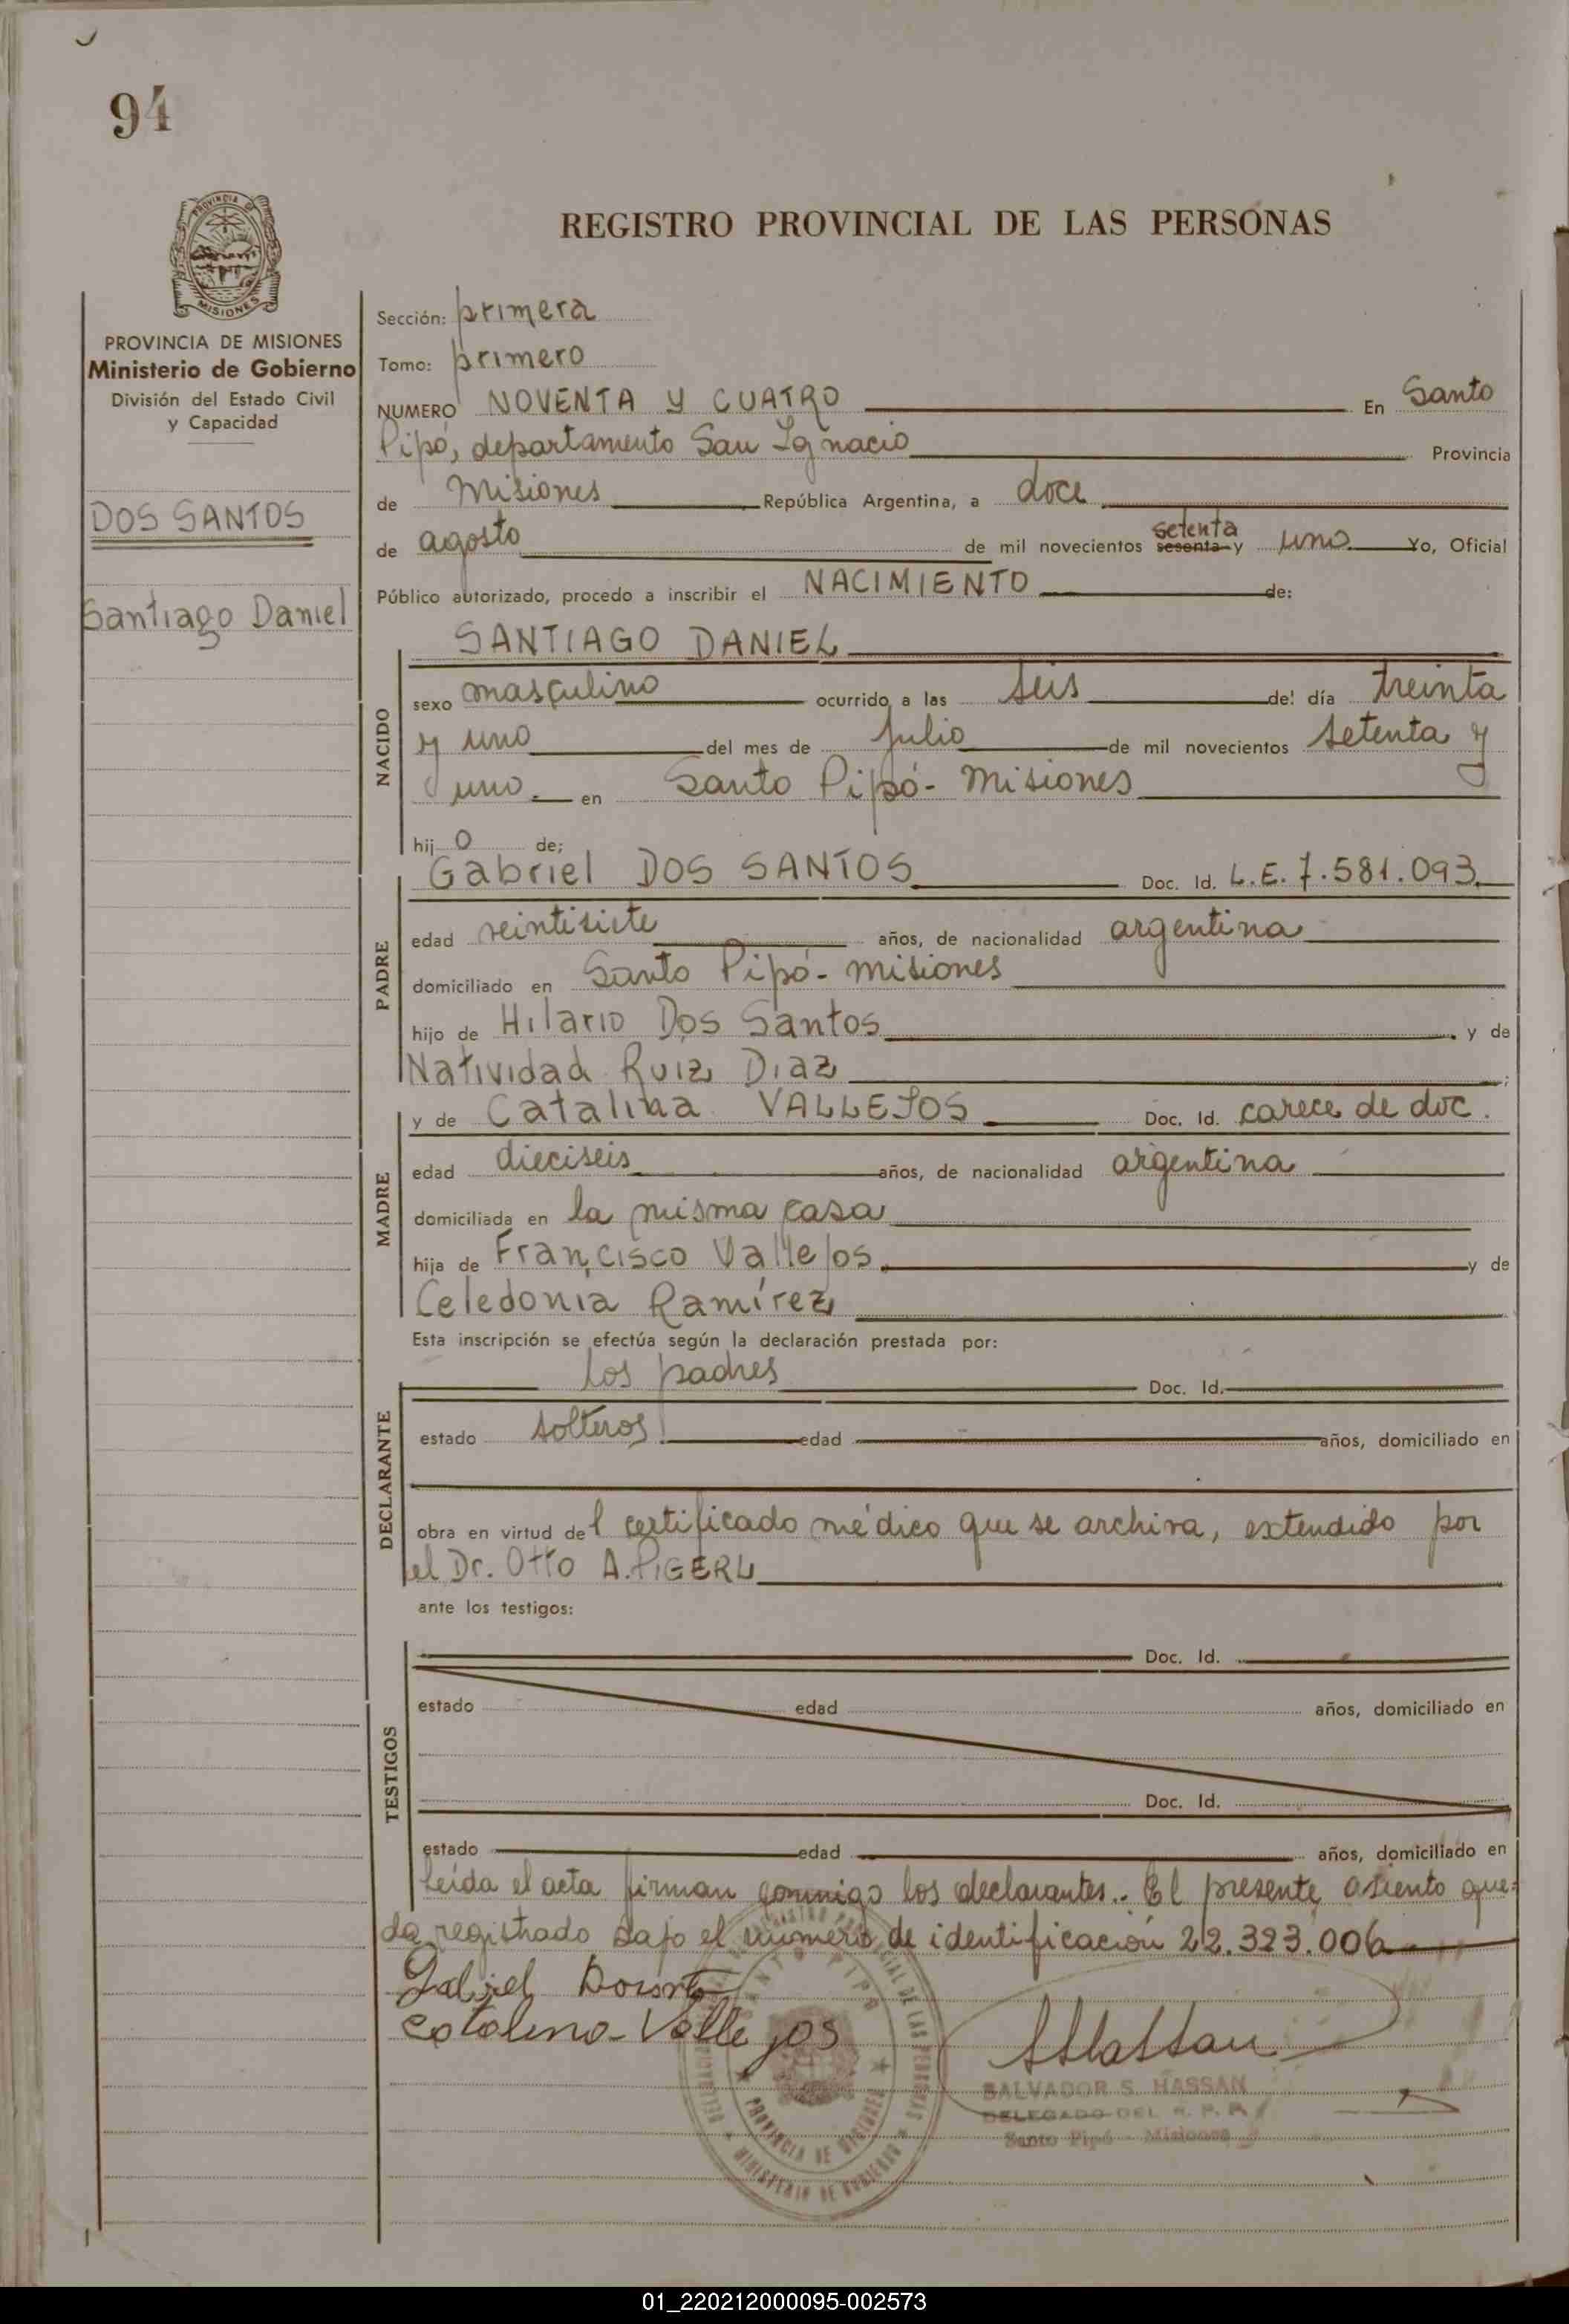 94
PROVINCIA DE
MISIONES
REGISTRO PROVINCIAL DE LAS PERSONAS
PROVINCIA DE MISIONES
Ministerio de Gobierno
División del Estado Civil
y Capacidad
DOS SANTOS
Santiago Daniel
Sección: primera
Tomo: primero
NUMERO NOVENTA Y CUATRO En Santo
Pipó, departamento San Ignacio Provincia
de Misiones República Argentina, a doce
de agosto de mil novecientos sesenta setenta y uno Yo, Oficial
Público autorizado, procedo a inscribir el NACIMIENTO de:
SANTIAGO DANIEL
NACIDO
sexo masculino ocurrido a las seis del día treinta
y uno del mes de julio de mil novecientos setenta y
uno. en Santo Pipó - Misiones
hij o de:
PADRE
Gabriel DOS SANTOS Doc. Id. L.E. 7.581.093
edad veintisiete años, de nacionalidad argentina
domiciliado en Santo Pipó - misiones
hijo de Hilario Dos Santos y de
Natividad Ruiz Diaz ;
MADRE
y de Catalina VALLEJOS Doc. Id. carece de doc.
edad dieciseis años, de nacionalidad argentina
domiciliada en la misma casa
hija de Francisco Vallejos y de
Celedonia Ramírez
Esta inscripción se efectúa según la declaración prestada por:
DECLARANTE
los padres Doc. Id.
estado solteros edad años, domiciliado en
obra en virtud del certificado médico que se archiva, extendido por
el Dr. Otto A. PIGERL
ante los testigos:
TESTIGOS
Doc. Id.
estado edad años, domiciliado en
Doc. Id.
estado edad años, domiciliado en
Leída el acta firman conmigo los declarantes.. El presente asiento que-
da registrado bajo el numero de identificación 22.323.006
Gabriel
Catalina Vallejos
SANTO PIPO
PROVINCIA DE MISIONES
MINISTERIO DE GOBIERNO
SALVADOR S. HASSAN
DELEGADO DEL R. P. P.
Santo Pipó - Misiones
01_220212000095-002573